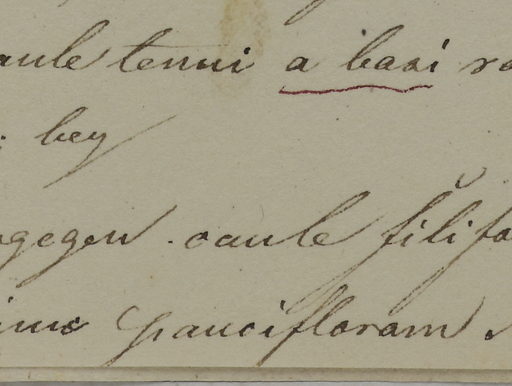 aule tenui a basi ra
: bey
gegen. caule filifo
ime paucifloram